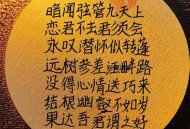 暗闻弦管九天上
恋君不去君须会
永叹潜怀似转蓬
远树参差 路
没得心情送巧来
结根幽 不知岁
果达吾君谓之好